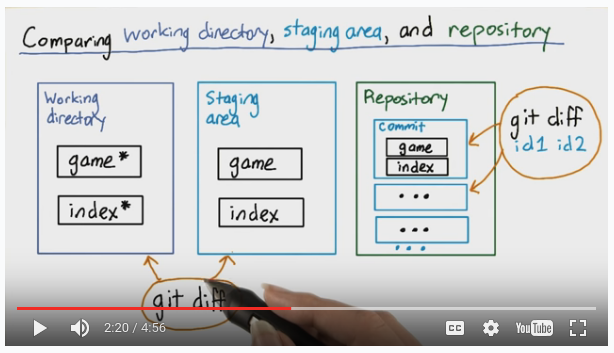 Comparing working directory, staging area, and repository
Working
directory
game*
index*
Staging
area
game
index
Repository
commit
game
index
...
...
...
git diff
id1 id2
git diff
2:20 / 4:56
CC
YouTube